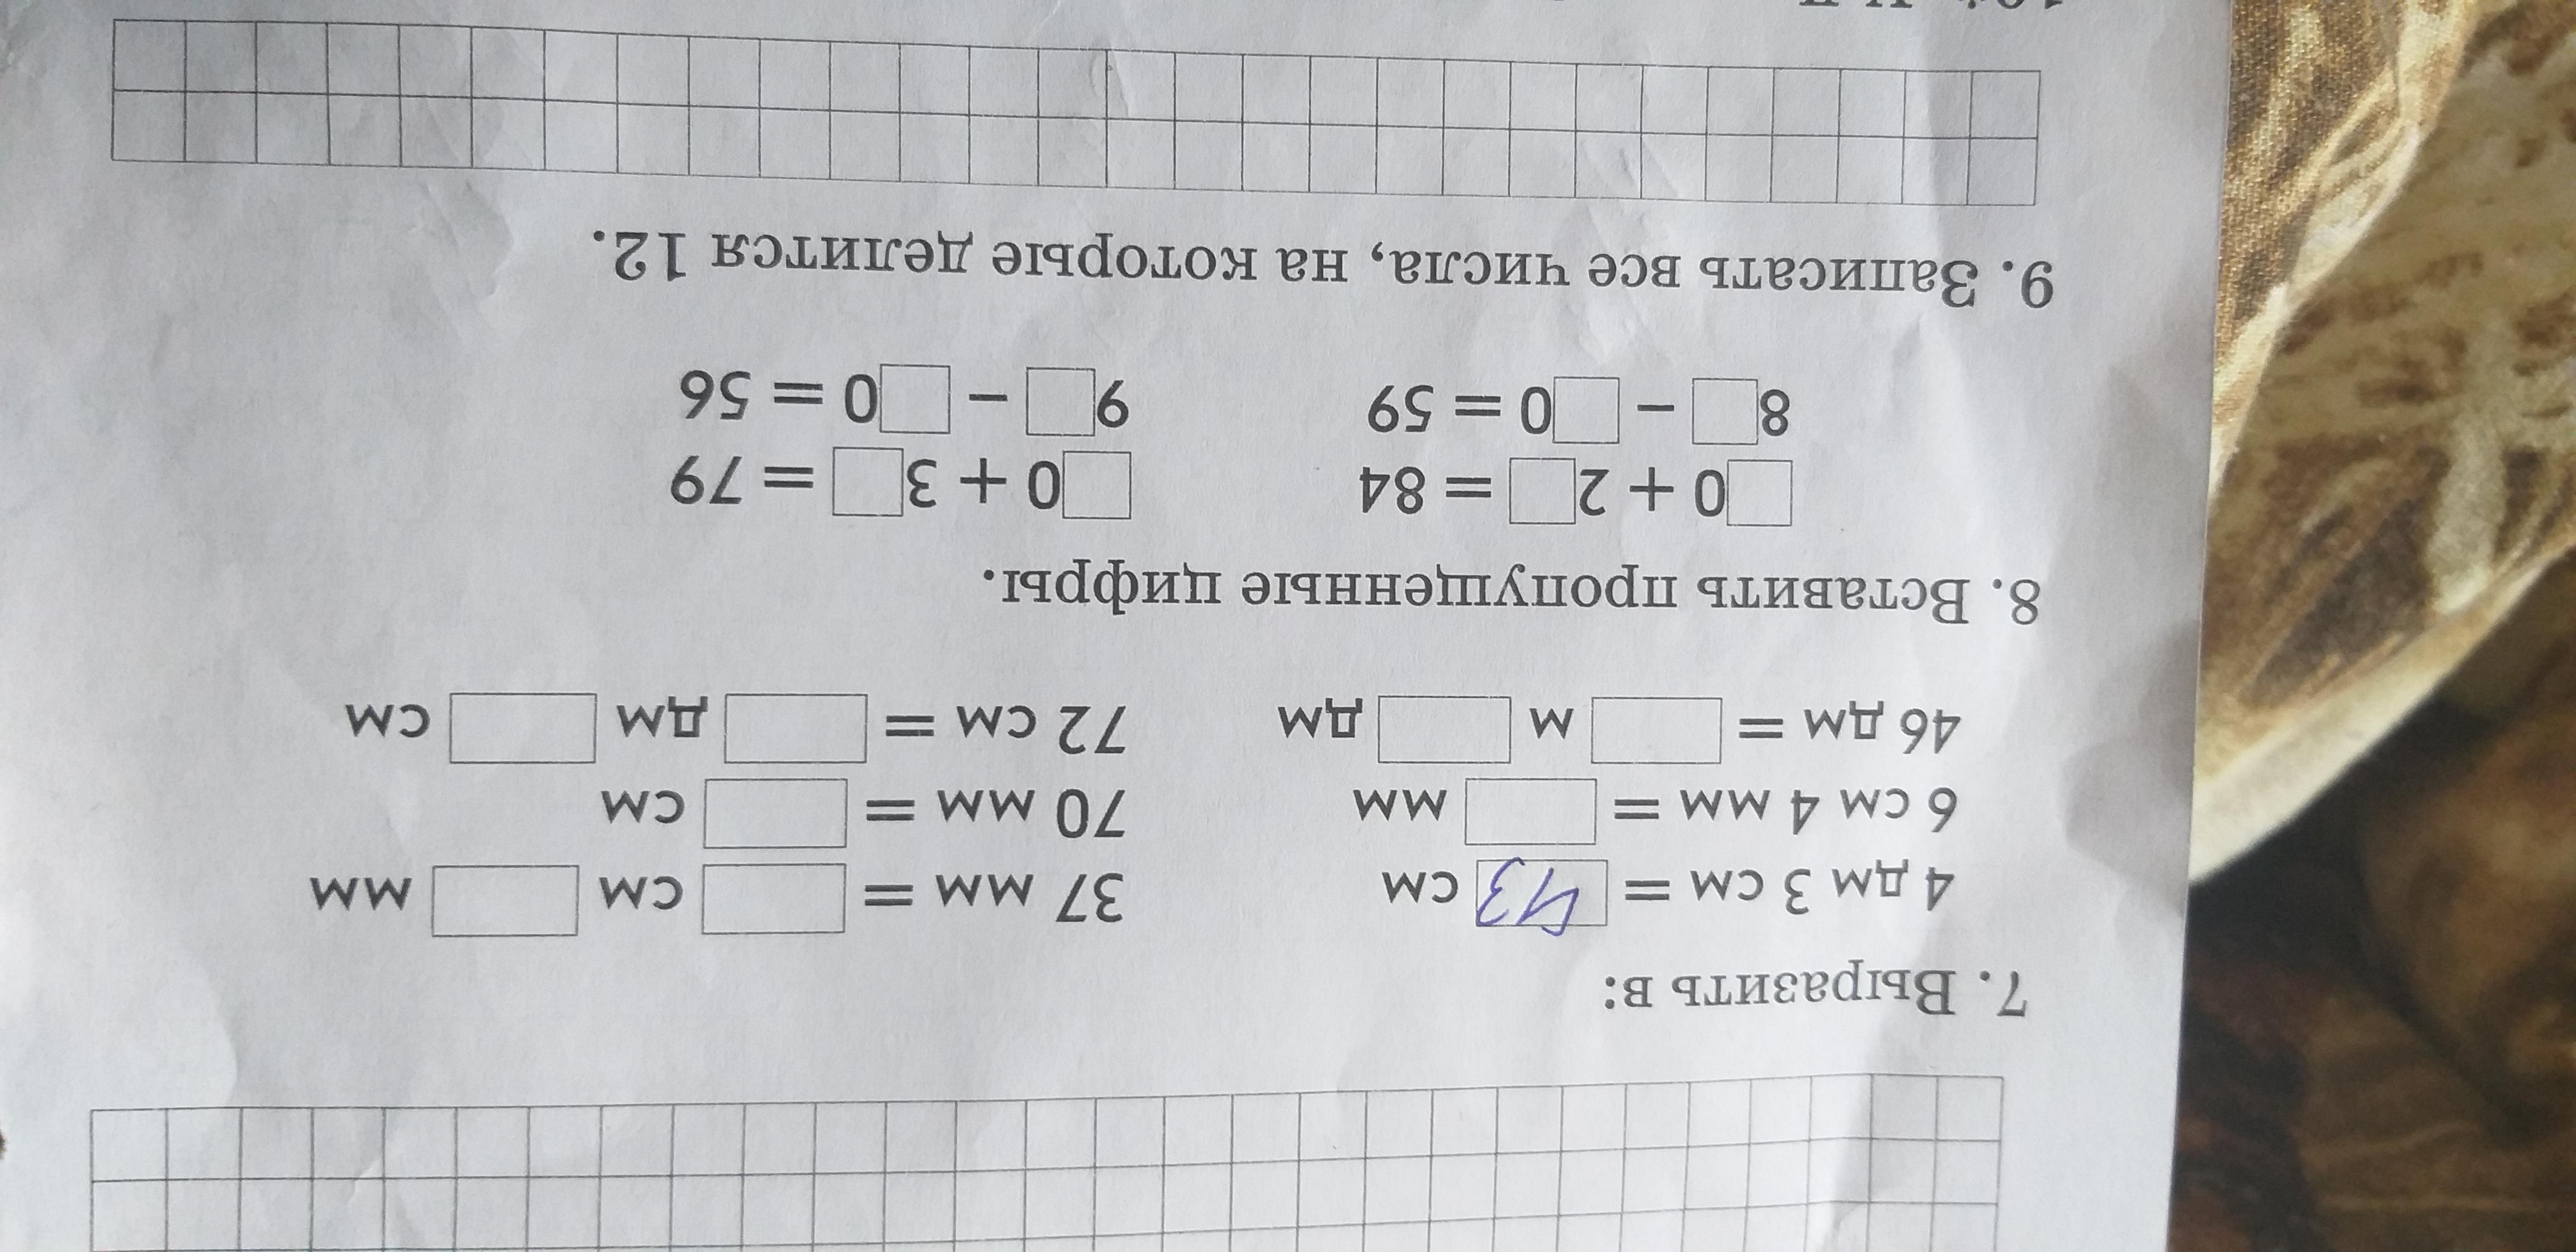 7. Выразить в:
4 дм 3 см = 43 см 37 мм = см мм
6 см 4 мм = мм 70 мм = см
46 дм = м дм 72 см = дм см
8. Вставить пропущенные цифры.
□0 + 2□ = 84 □0 + 3□ = 79
8□ − □0 = 59 9□ − □0 = 56
9. Записать все числа, на которые делится 12.